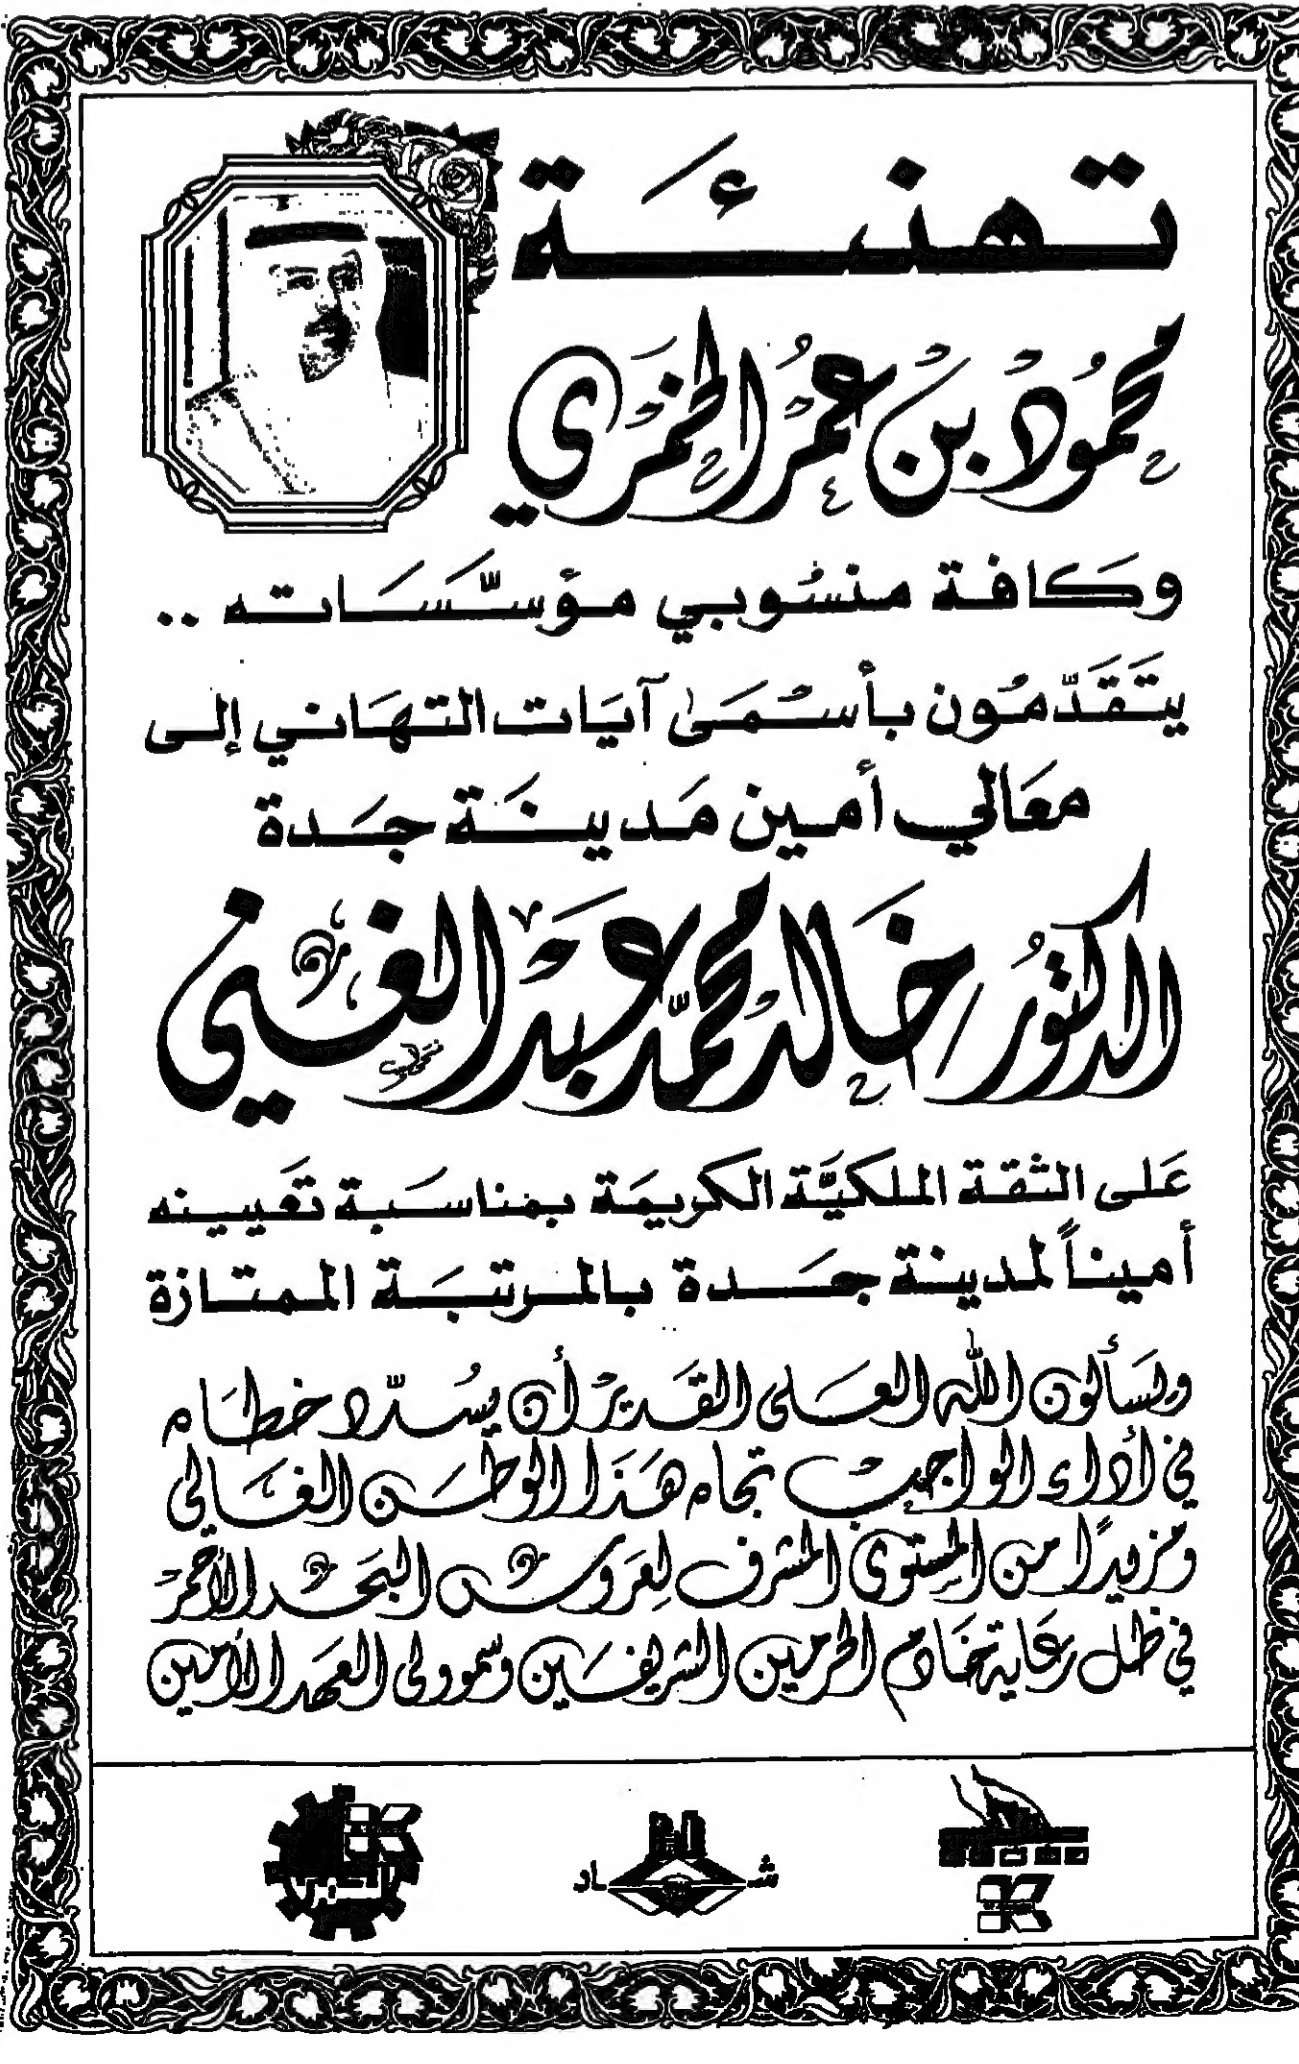 تهنئة
محمود بن عمر الخمري
وكافة منسوبي مؤسساته ..
يتقدمون بأسمى آيات التهاني إلى
معالي أمين مدينة جدة
الدكتور خالد محمد عبد الغني
على الثقة الملكية الكريمة بمناسبة تعيينه
أميناً لمدينة جدة بالمرتبة الممتازة
ويسألون الله العلى القدير أن يسدد خطاه
في أداء الواجب تجاه هذا الوطن الغالي
ومزيدًا من المستوى المشرف لعروس البحر الأحمر
في ظل رعاية خادم الحرمين الشريفين وسمو ولى العهد الأمين
شاد